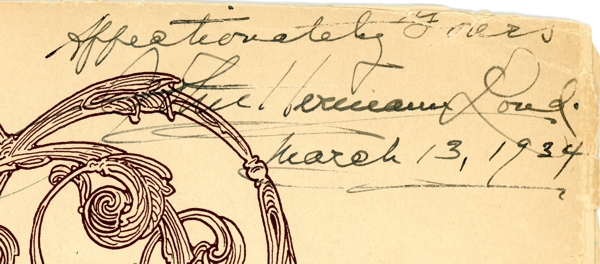 Affectionately yours
John Hermann Loud.
March 13, 1934